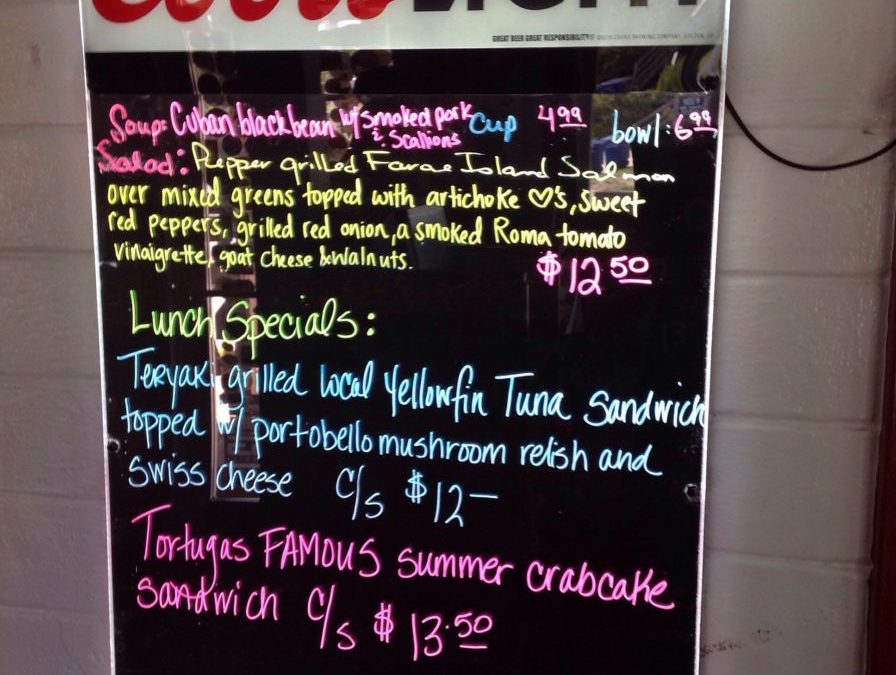 Coors LIGHT
GREAT BEER GREAT RESPONSIBILITY
Soup: Cuban black bean w/ smoked pork & Scallions Cup 4.99 bowl: 6.99
Salad: Pepper grilled Faroe Island Salmon
over mixed greens topped with artichoke ♡'s, sweet
red peppers, grilled red onion, a smoked Roma tomato
vinaigrette, goat cheese & walnuts. $12.50
Lunch Specials:
Teryaki grilled local Yellowfin Tuna Sandwich
topped w/ portobello mushroom relish and
Swiss cheese c/s $12—
Tortugas FAMOUS summer crabcake
sandwich c/s $13.50